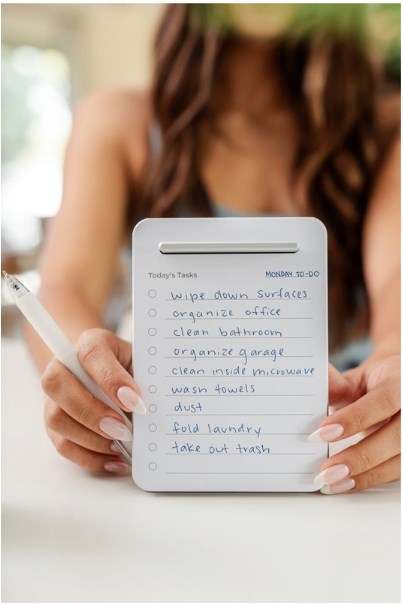 Today's Tasks
MONDAY TO-DO
wipe down surfaces
organize office
clean bathroom
organize garage
clean inside microwave
wash towels
dust
fold laundry
take out trash